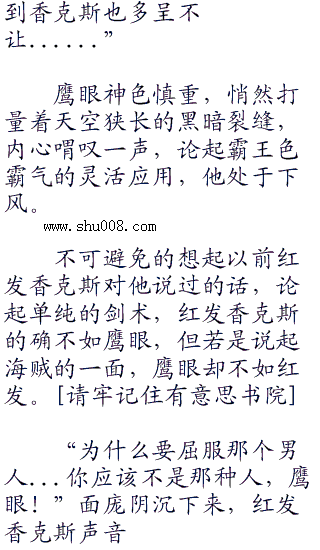 到香克斯也多呈不
让......”
鹰眼神色慎重，悄然打
量着天空狭长的黑暗裂缝，
内心喟叹一声，论起霸王色
霸气的灵活应用，他处于下
风。
www.shu008.com
不可避免的想起以前红
发香克斯对他说过的话，论
起单纯的剑术，红发香克斯
的确不如鹰眼，但若是说起
海贼的一面，鹰眼却不如红
发。[请牢记住有意思书院]
“为什么要屈服那个男
人...你应该不是那种人，鹰
眼！”面庞阴沉下来，红发
香克斯声音